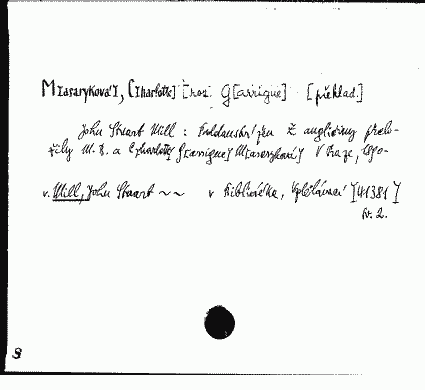 M[asaryková], C[harlotta] [roz. G[arrigue] [překlad.]
John Stuart Mill : Poddanství žen Z angličiny přelo-
žily M. R. a C[harlotta] G[arrigue] M[asaryková] V Praze, 1890-
v. Mill, John Stuart ~~ v Bibliotéka, Vzdělávací [41381]
sv. 2.